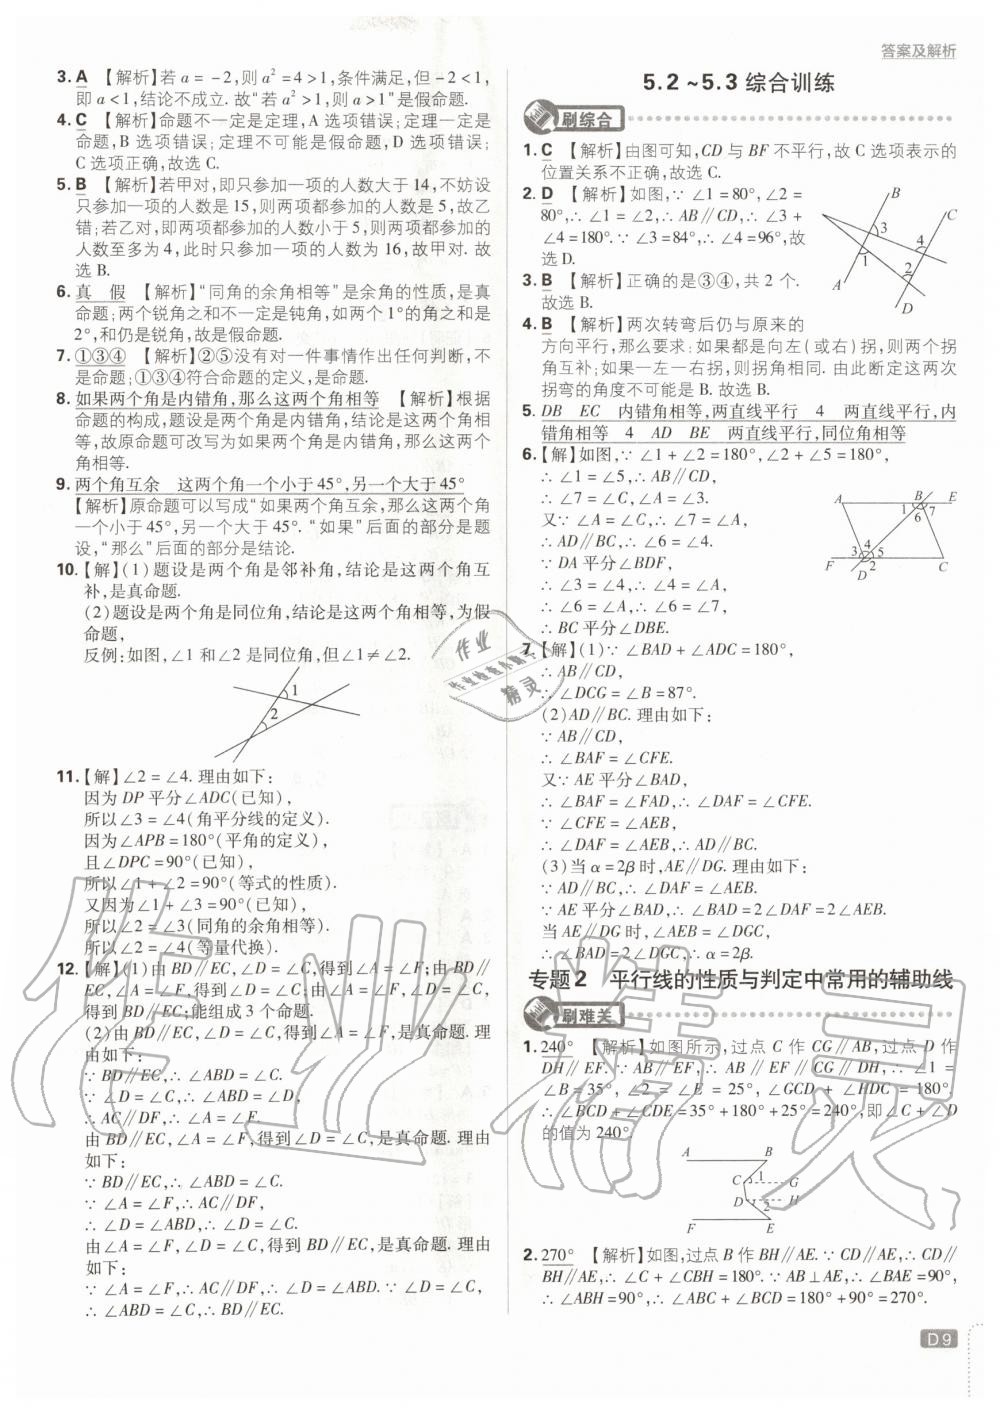 答案及解析
3. A 【解析】若 a = -2,则 a²=4>1,条件满足,但-2<1,
即 a<1,结论不成立. 故“若 a²>1,则 a>1”是假命题.
4. C 【解析】命题不一定是定理,A 选项错误;定理一定是
命题,B 选项错误;定理不可能是假命题,D 选项错误;
C 选项正确,故选 C.
5. B 【解析】若甲对,即只参加一项的人数大于 14,不妨设
只参加一项的人数是 15,则两项都参加的人数是 5,故乙
错;若乙对,即两项都参加的人数小于 5,则两项都参加的
人数至多为 4,此时只参加一项的人数为 16,故甲对. 故
选 B.
6. 真 假 【解析】“同角的余角相等”是余角的性质,是真
命题;两个锐角之和不一定是钝角,如两个 1°的角之和是
2°,和仍是锐角,故是假命题.
7. ①③④ 【解析】②⑤没有对一件事情作出任何判断,不
是命题;①③④符合命题的定义,是命题.
8. 如果两个角是内错角,那么这两个角相等 【解析】根据
命题的构成,题设是两个角是内错角,结论是这两个角相
等,故原命题可改写为如果两个角是内错角,那么这两个
角相等.
9. 两个角互余 这两个角一个小于 45°,另一个大于 45°
【解析】原命题可以写成“如果两个角互余,那么这两个角
一个小于 45°,另一个大于 45°. “如果”后面的部分是题
设,“那么”后面的部分是结论.
10. 【解】(1)题设是两个角是邻补角,结论是这两个角互
补,是真命题.
(2)题设是两个角是同位角,结论是这两个角相等,为假
命题,
反例:如图,∠1 和∠2 是同位角,但∠1≠∠2.
1
2
11. 【解】∠2 = ∠4. 理由如下:
因为 DP 平分∠ADC(已知),
所以∠3 = ∠4(角平分线的定义).
因为∠APB = 180°(平角的定义),
且∠DPC = 90°(已知),
所以∠1 + ∠2 = 90°(等式的性质).
又因为∠1 + ∠3 = 90°(已知),
所以∠2 = ∠3(同角的余角相等).
所以∠2 = ∠4(等量代换).
12. 【解】(1)由 BD∥EC,∠D = ∠C,得到∠A = ∠F;由 BD∥
EC,∠A = ∠F,得到∠D = ∠C;由∠A = ∠F,∠D = ∠C,
得到 BD∥EC;能组成 3 个命题.
(2)由 BD∥EC,∠D = ∠C,得到∠A = ∠F,是真命题. 理
由如下:
∵ BD∥EC,∴ ∠ABD = ∠C.
∵ ∠D = ∠C,∴ ∠ABD = ∠D,
∴ AC∥DF,∴ ∠A = ∠F.
由 BD∥EC,∠A = ∠F,得到∠D = ∠C,是真命题. 理由
如下:
∵ BD∥EC,∴ ∠ABD = ∠C.
∵ ∠A = ∠F,∴ AC∥DF,
∴ ∠D = ∠ABD,∴ ∠D = ∠C.
由∠A = ∠F,∠D = ∠C,得到 BD∥EC,是真命题. 理由
如下:
∵ ∠A = ∠F,∴ AC∥DF,∴ ∠D = ∠ABD. ∵ ∠D = ∠C,
∴ ∠ABD = ∠C,∴ BD∥EC.
5.2~5.3综合训练
刷综合
1. C 【解析】由图可知,CD 与 BF 不平行,故 C 选项表示的
位置关系不正确,故选 C.
2. D 【解析】如图,∵ ∠1 = 80°,∠2 =
80°,∴ ∠1 = ∠2,∴ AB∥CD,∴ ∠3 +
∠4 = 180°. ∵ ∠3 = 84°,∴ ∠4 = 96°,故
选 D.
B
C
3
4
1
2
A
D
3. B 【解析】正确的是③④,共 2 个.
故选 B.
4. B 【解析】两次转弯后仍与原来的
方向平行,那么要求:如果都是向左(或右)拐,则两个拐
角互补;如果一左一右拐,则拐角相同. 由此断定这两次
拐弯的角度不可能是 B. 故选 B.
5. DB EC 内错角相等,两直线平行 4 两直线平行,内
错角相等 4 AD BE 两直线平行,同位角相等
6. 【解】如图,∵ ∠1 + ∠2 = 180°,∠2 + ∠5 = 180°,
∴ ∠1 = ∠5,∴ AB∥CD,
∴ ∠7 = ∠C,∠A = ∠3.
又∵ ∠A = ∠C,∴ ∠7 = ∠A,
∴ AD∥BC,∴ ∠6 = ∠4.
∵ DA 平分∠BDF,
∴ ∠3 = ∠4,∴ ∠4 = ∠A,
∴ ∠6 = ∠A,∴ ∠6 = ∠7,
∴ BC 平分∠DBE.
A
B
E
1
7
6
4
3
5
F
2
D
C
7. 【解】(1)∵ ∠BAD + ∠ADC = 180°,
∴ AB∥CD,
∴ ∠DCG = ∠B = 87°.
(2)AD∥BC. 理由如下:
∵ AB∥CD,
∴ ∠BAF = ∠CFE.
又∵ AE 平分∠BAD,
∴ ∠BAF = ∠FAD,∴ ∠DAF = ∠CFE.
∵ ∠CFE = ∠AEB,
∴ ∠DAF = ∠AEB,∴ AD∥BC.
(3)当 α = 2β 时,AE∥DG. 理由如下:
∵ AD∥BC,∴ ∠DAF = ∠AEB.
∵ AE 平分∠BAD,∴ ∠BAD = 2∠DAF = 2∠AEB.
当 AE∥DG 时,∠AEB = ∠DGC,
∴ ∠BAD = 2∠DGC,∴ α = 2β.
专题 2 平行线的性质与判定中常用的辅助线
刷难关
1. 240° 【解析】如图所示,过点 C 作 CG∥AB,过点 D 作
DH∥EF. ∵ AB∥EF,∴ AB∥EF∥CG∥DH,∴ ∠1 =
∠B = 35°,∠2 = ∠E = 25°,∠GCD + ∠HDC = 180°,
∴ ∠BCD + ∠CDE = 35° + 180° + 25° = 240°,即∠C + ∠D
的值为 240°.
A
B
C
1
G
D
H
2
F
E
2. 270° 【解析】如图,过点 B 作 BH∥AE. ∵ CD∥AE,∴ CD∥
BH∥AE,∴ ∠C + ∠CBH = 180°. ∵ AB⊥AE,∴ ∠BAE = 90°,
∴ ∠ABH = 90°,∴ ∠ABC + ∠BCD = 180° + 90° = 270°.
D9
作业
作业检查小助手
精灵
作业精灵